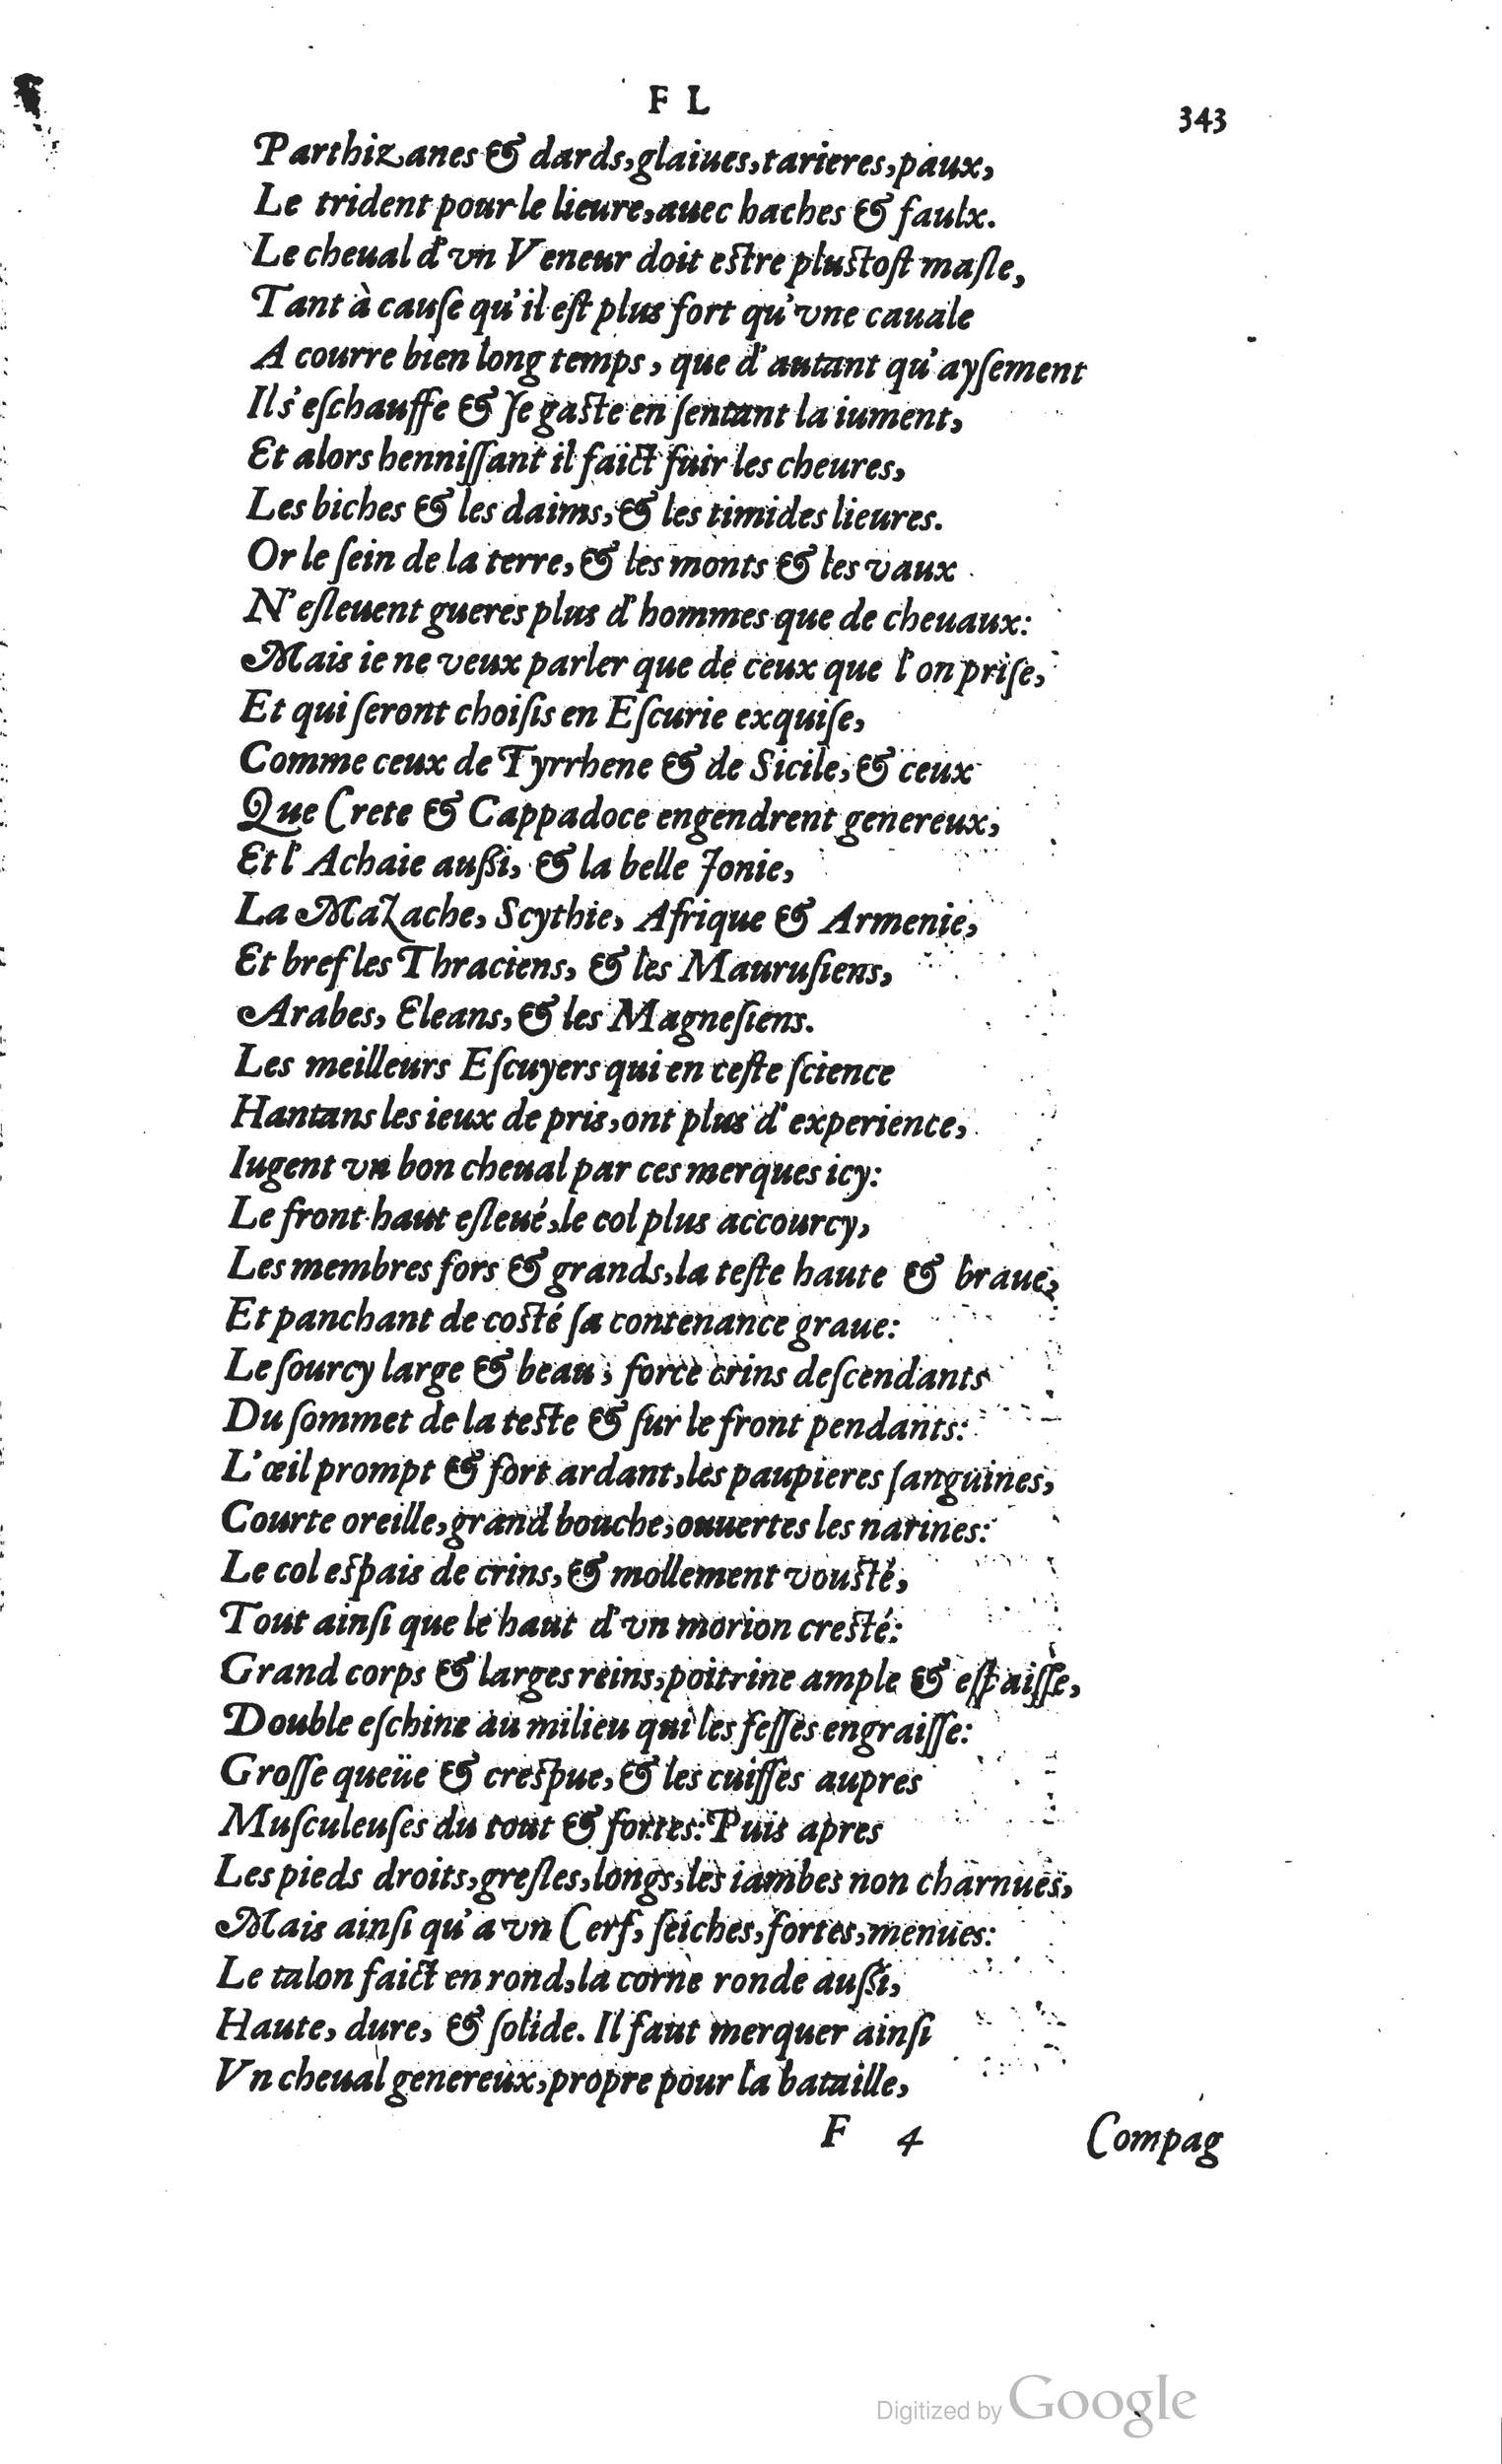 F L
343
Parthizanes & dards, glaiues, tarieres, paux,
Le trident pour le lieure, auec haches & faulx.
Le cheual d'vn Veneur doit estre plustost masle,
Tant à cauſe qu'il eſt plus fort qu'vne cauale
A courre bien long temps, que d'autant qu'ayſement
Il s'eſchauffe & ſe gaste en ſentant la iument,
Et alors henniſſant il faict fuir les cheures,
Les biches & les daims, & les timides lieures.
Or le ſein de la terre, & les monts & les vaux
N'eſleuent gueres plus d'hommes que de cheuaux:
Mais ie ne veux parler que de ceux que l'on priſe,
Et qui ſeront choiſis en Eſcurie exquiſe,
Comme ceux de Tyrrhene & de Sicile, & ceux
Que Crete & Cappadoce engendrent genereux,
Et l'Achaie außi, & la belle Ionie,
La Mazache, Scythie, Afrique & Armenie,
Et bref les Thraciens, & les Mauruſiens,
Arabes, Eleans, & les Magneſiens.
Les meilleurs Eſcuyers qui en ceſte ſcience
Hantans les ieux de pris, ont plus d'experience,
Iugent vn bon cheual par ces merques icy:
Le front haut eſleué, le col plus accourcy,
Les membres fors & grands, la teſte haute & braue,
Et panchant de costé ſa contenance graue:
Le ſourcy large & beau, force crins deſcendants
Du ſommet de la teste & ſur le front pendants:
L'œil prompt & fort ardant, les paupieres ſanguines,
Courte oreille, grand bouche, ouuertes les narines:
Le col espais de crins, & mollement vousté,
Tout ainſi que le haut d'vn morion cresté:
Grand corps & larges reins, poitrine ample & eſpaiſſe,
Double eſchine au milieu qui les feſſes engraiſſe:
Groſſe queüe & crespue, & les cuiſſes aupres
Muſculeuſes du tout & fortes: Puis apres
Les pieds droits, greſles, longs, les iambes non charnues,
Mais ainſi qu'a vn Cerf, ſeiches, fortes, menues:
Le talon faict en rond, la corne ronde auſſi,
Haute, dure, & ſolide. Il faut merquer ainſi
Vn cheual genereux, propre pour la bataille,
F 4
Compag
Digitized by Google